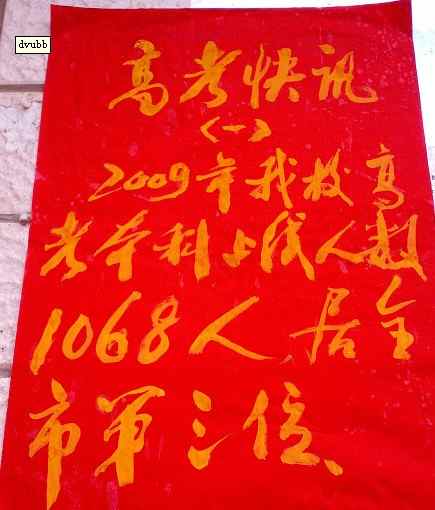 dvubb
高考快讯
<一>
2009年我校高
考本科上线人数
1068人,居全
市第三位、